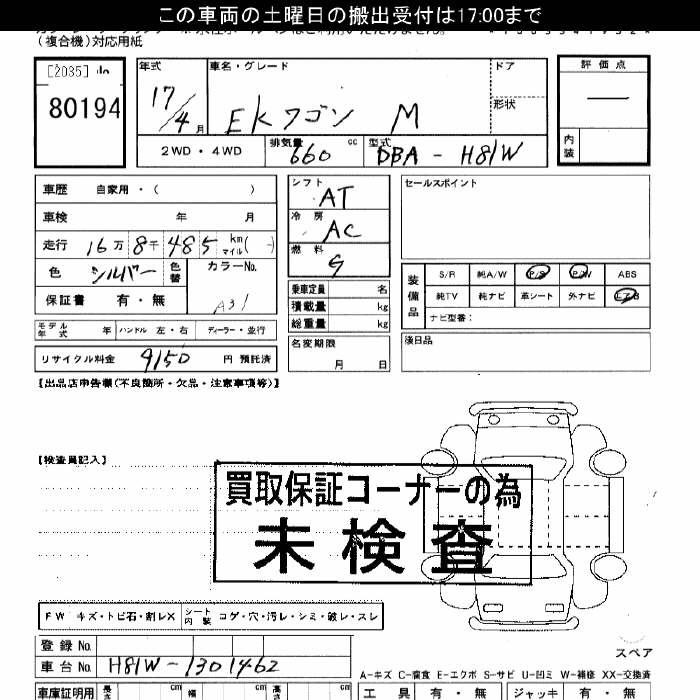 この車両の土曜日の搬出受付は17:00まで
(複合機)対応用紙
[2035]
80194
年式
17/4月
車名・グレード
EKワゴン M
ドア
形状
評価点
―
内装
2WD・4WD
排気量 660 cc
型式 DBA - H81W
車歴 自家用・( )
車検 年 月
走行 16万8千485 km マイル( - )
色 シルバー 色替
カラーNo. A31
保証書 有・無
モデル年式 年 ハンドル 左・右 ディーラー・並行
リサイクル料金 9150 円 預託済
シフト AT
冷房 AC
燃料 G
乗車定員 名
積載量 kg
総重量 kg
名変期限
月 日
セールスポイント
装備品
S/R 純A/W P/S P/W ABS
純TV 純ナビ 革シート 外ナビ エアB
ナビ型番:
後日品
【出品店申告欄(不良箇所・欠品・注意事項等)】
【検査員記入】
買取保証コーナーの為
未検査
FW キズ・トビ石・割レX シート内装 コゲ・穴・汚レ・シミ・破レ・スレ
登録No.
車台No. H81W-1301462
スペア
A-キズ C-腐食 E-エクボ S-サビ U-凹ミ W-補修 XX-交換済
車庫証明用 長さ cm 幅 cm 高さ cm
工具 有・無 ジャッキ 有・無